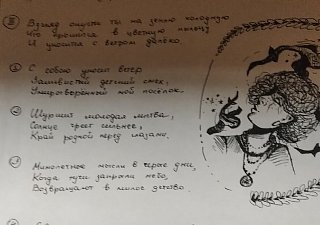 Взгляд опусти ты на землю холодную
Что
в цветную пыльцу
И уносится с ветром далёко.
① С собою уносит ветер
Заливистый детский смех,
Умиротворённый мой посёлок.
② Шуршит молодая листва,
Солнце греет сильнее,
Край родной перед глазами.
Мимолётные мысли в серые дни,
Когда тучи закрыли небо,
Возвращают в милое детство.